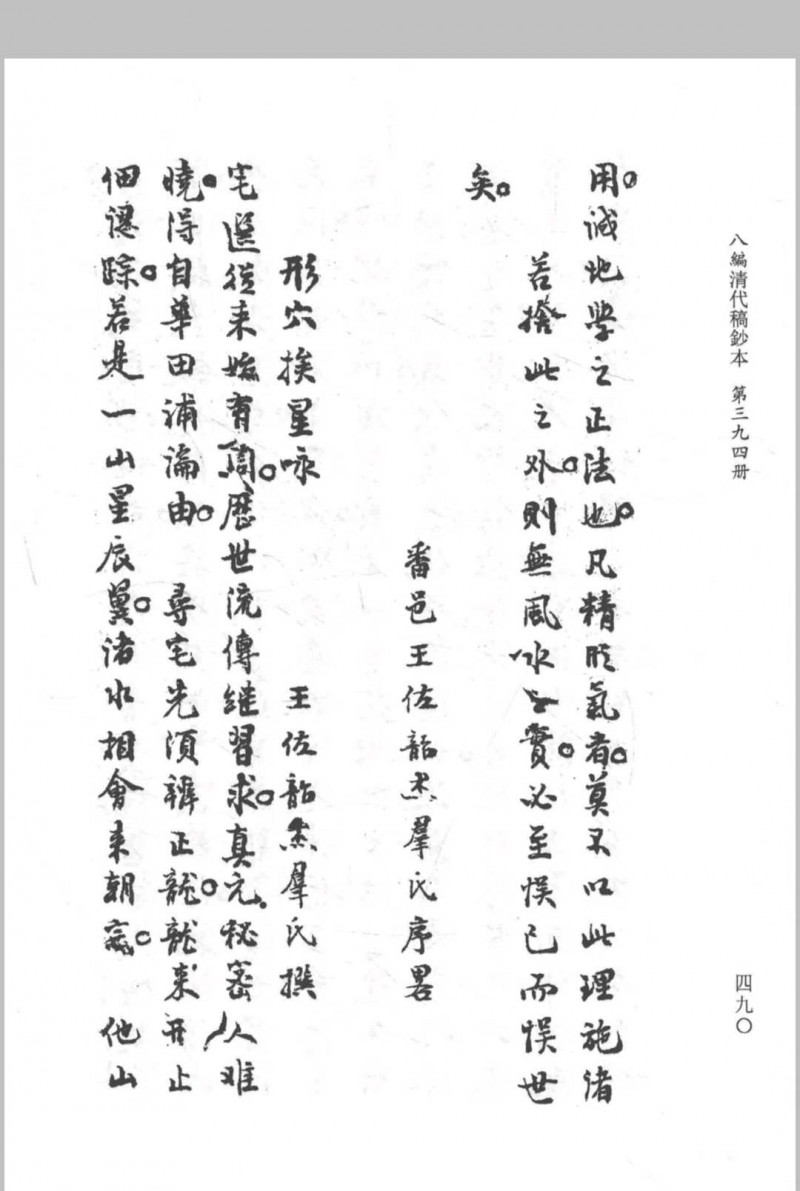 八編清代稿鈔本 第三九四册
四九〇
用。誠地學之正法也。凡精於氣者。莫不以此理施諸
若捨此之外。則無風水之實。必至悞己而悞世
矣。
番邑王佐韶杰羣氏序畧
形穴挨星咏 王佐韶杰羣氏撰
宅選從來始有周。歷世流傳继習求。真元秘密人难
曉。得自華田浦瀹由。 尋宅先須辨正龍。龍來丌止
個踪。若是一山星辰巽。渚水相會来朝 。 他山